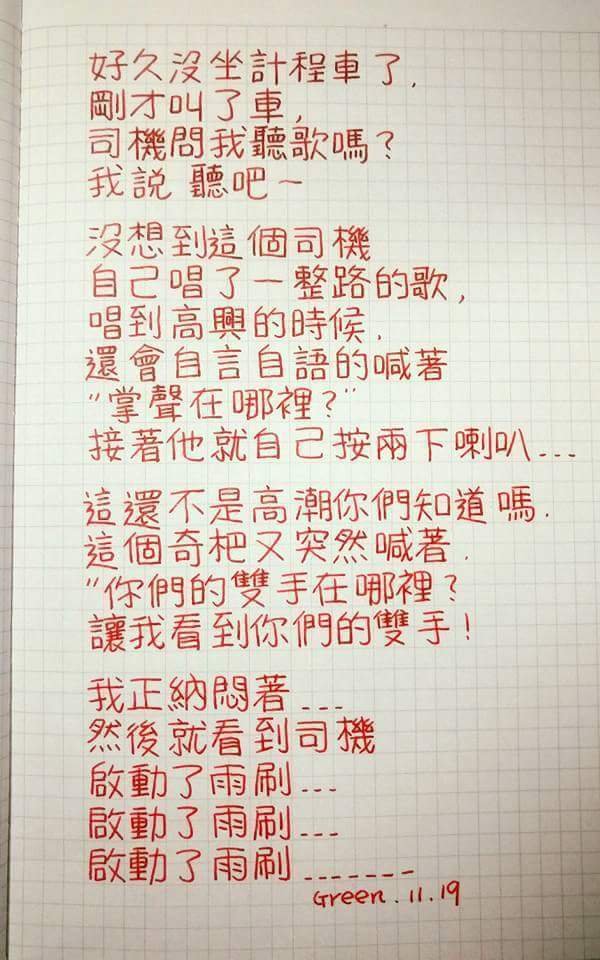 好久沒坐計程車了,
剛才叫了車,
司機問我聽歌嗎?
我說 聽吧~
沒想到這個司機
自己唱了一整路的歌,
唱到高興的時候,
還會自言自語的喊著
“掌聲在哪裡?”
接著他就自己按兩下喇叭...
這還不是高潮你們知道嗎.
這個奇杷又突然喊著.
“你們的雙手在哪裡?
讓我看到你們的雙手!
我正納悶著...
然後就看到司機
啟動了雨刷...
啟動了雨刷...
啟動了雨刷.......
Green.11.19